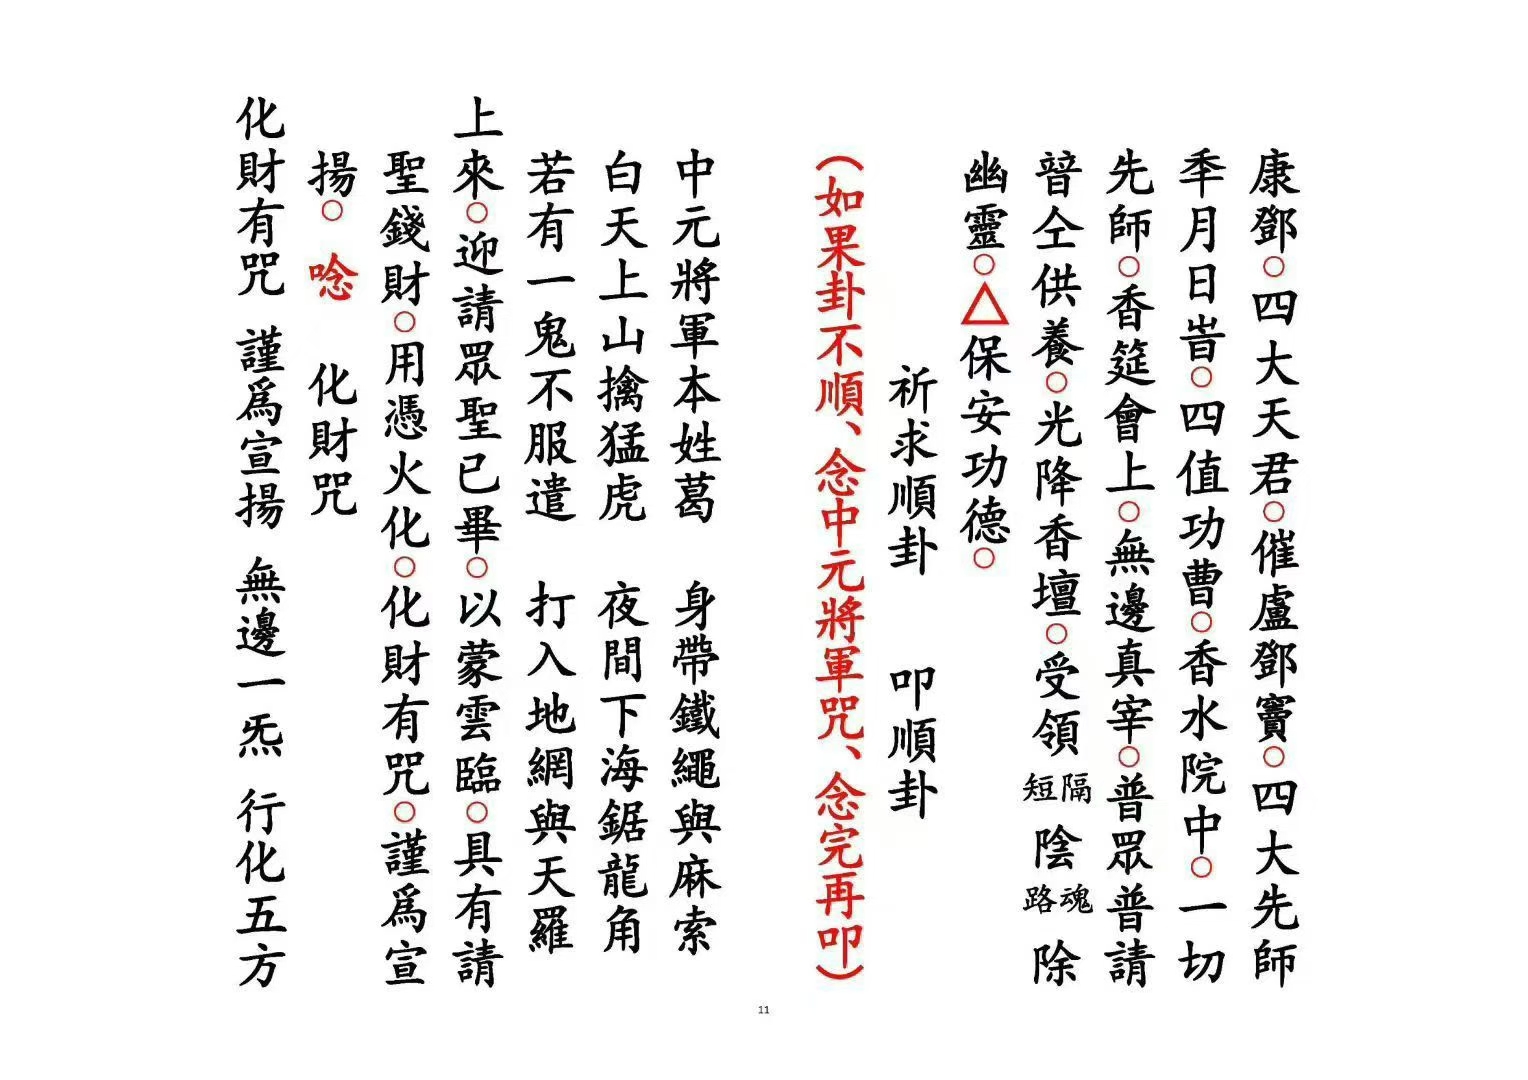 康鄧○四大天君○催盧鄧竇○四大先師
秊月日旹○四值功曹○香水院中○一切
先師○香筵會上○無邊真宰○普眾普請
暜仝供養○光降香壇○受領 隔短 陰 魂路 除
幽靈○△保安功德○
祈求順卦 叩順卦
(如果卦不順、念中元將軍咒、念完再叩)
中元將軍本姓葛 身帶鐵繩與麻索
白天上山擒猛虎 夜間下海鋸龍角
若有一鬼不服遣 打入地網與天羅
上來○迎請眾聖已畢○以蒙雲臨○具有請
聖錢財○用憑火化○化財有咒○謹為宣
揚○ 唸 化財咒
化財有咒 謹為宣揚 無邊一炁 行化五方
11